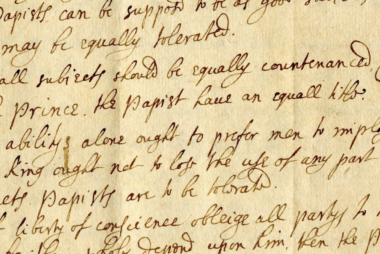 Papists can be suppos'd to be as good
may be equally tolerated.
all subjects should be equally countenanced
Prince, the Papist have an equall title.
ability alone ought to prefer men to imploy
King ought not to lose the use of any part
Papists are to be tolerated.
liberty of conscience obleige all partys to
depend upon him, then the P